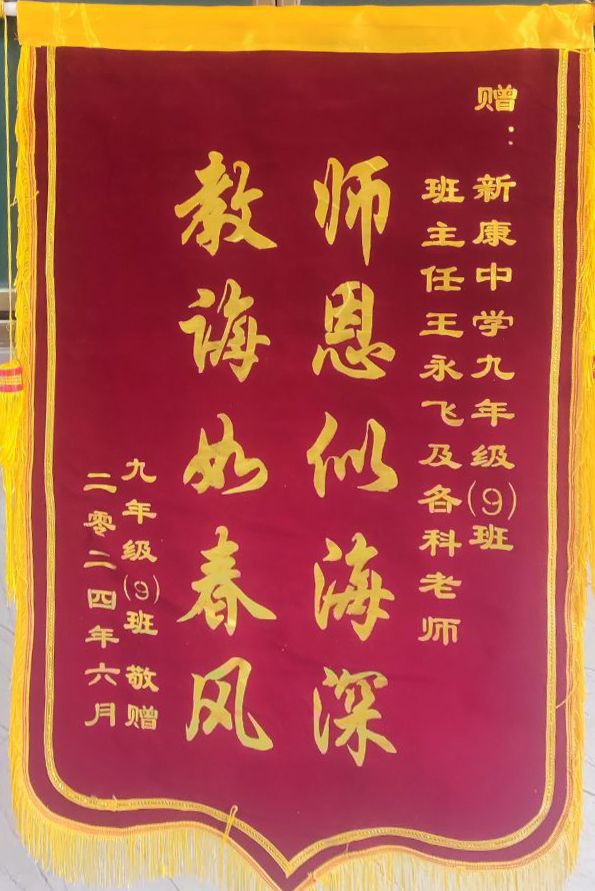 赠：新康中学九年级(9)班
班主任王永飞及各科老师
师恩似海深
教诲如春风
九年级(9)班 敬赠
二零二四年六月